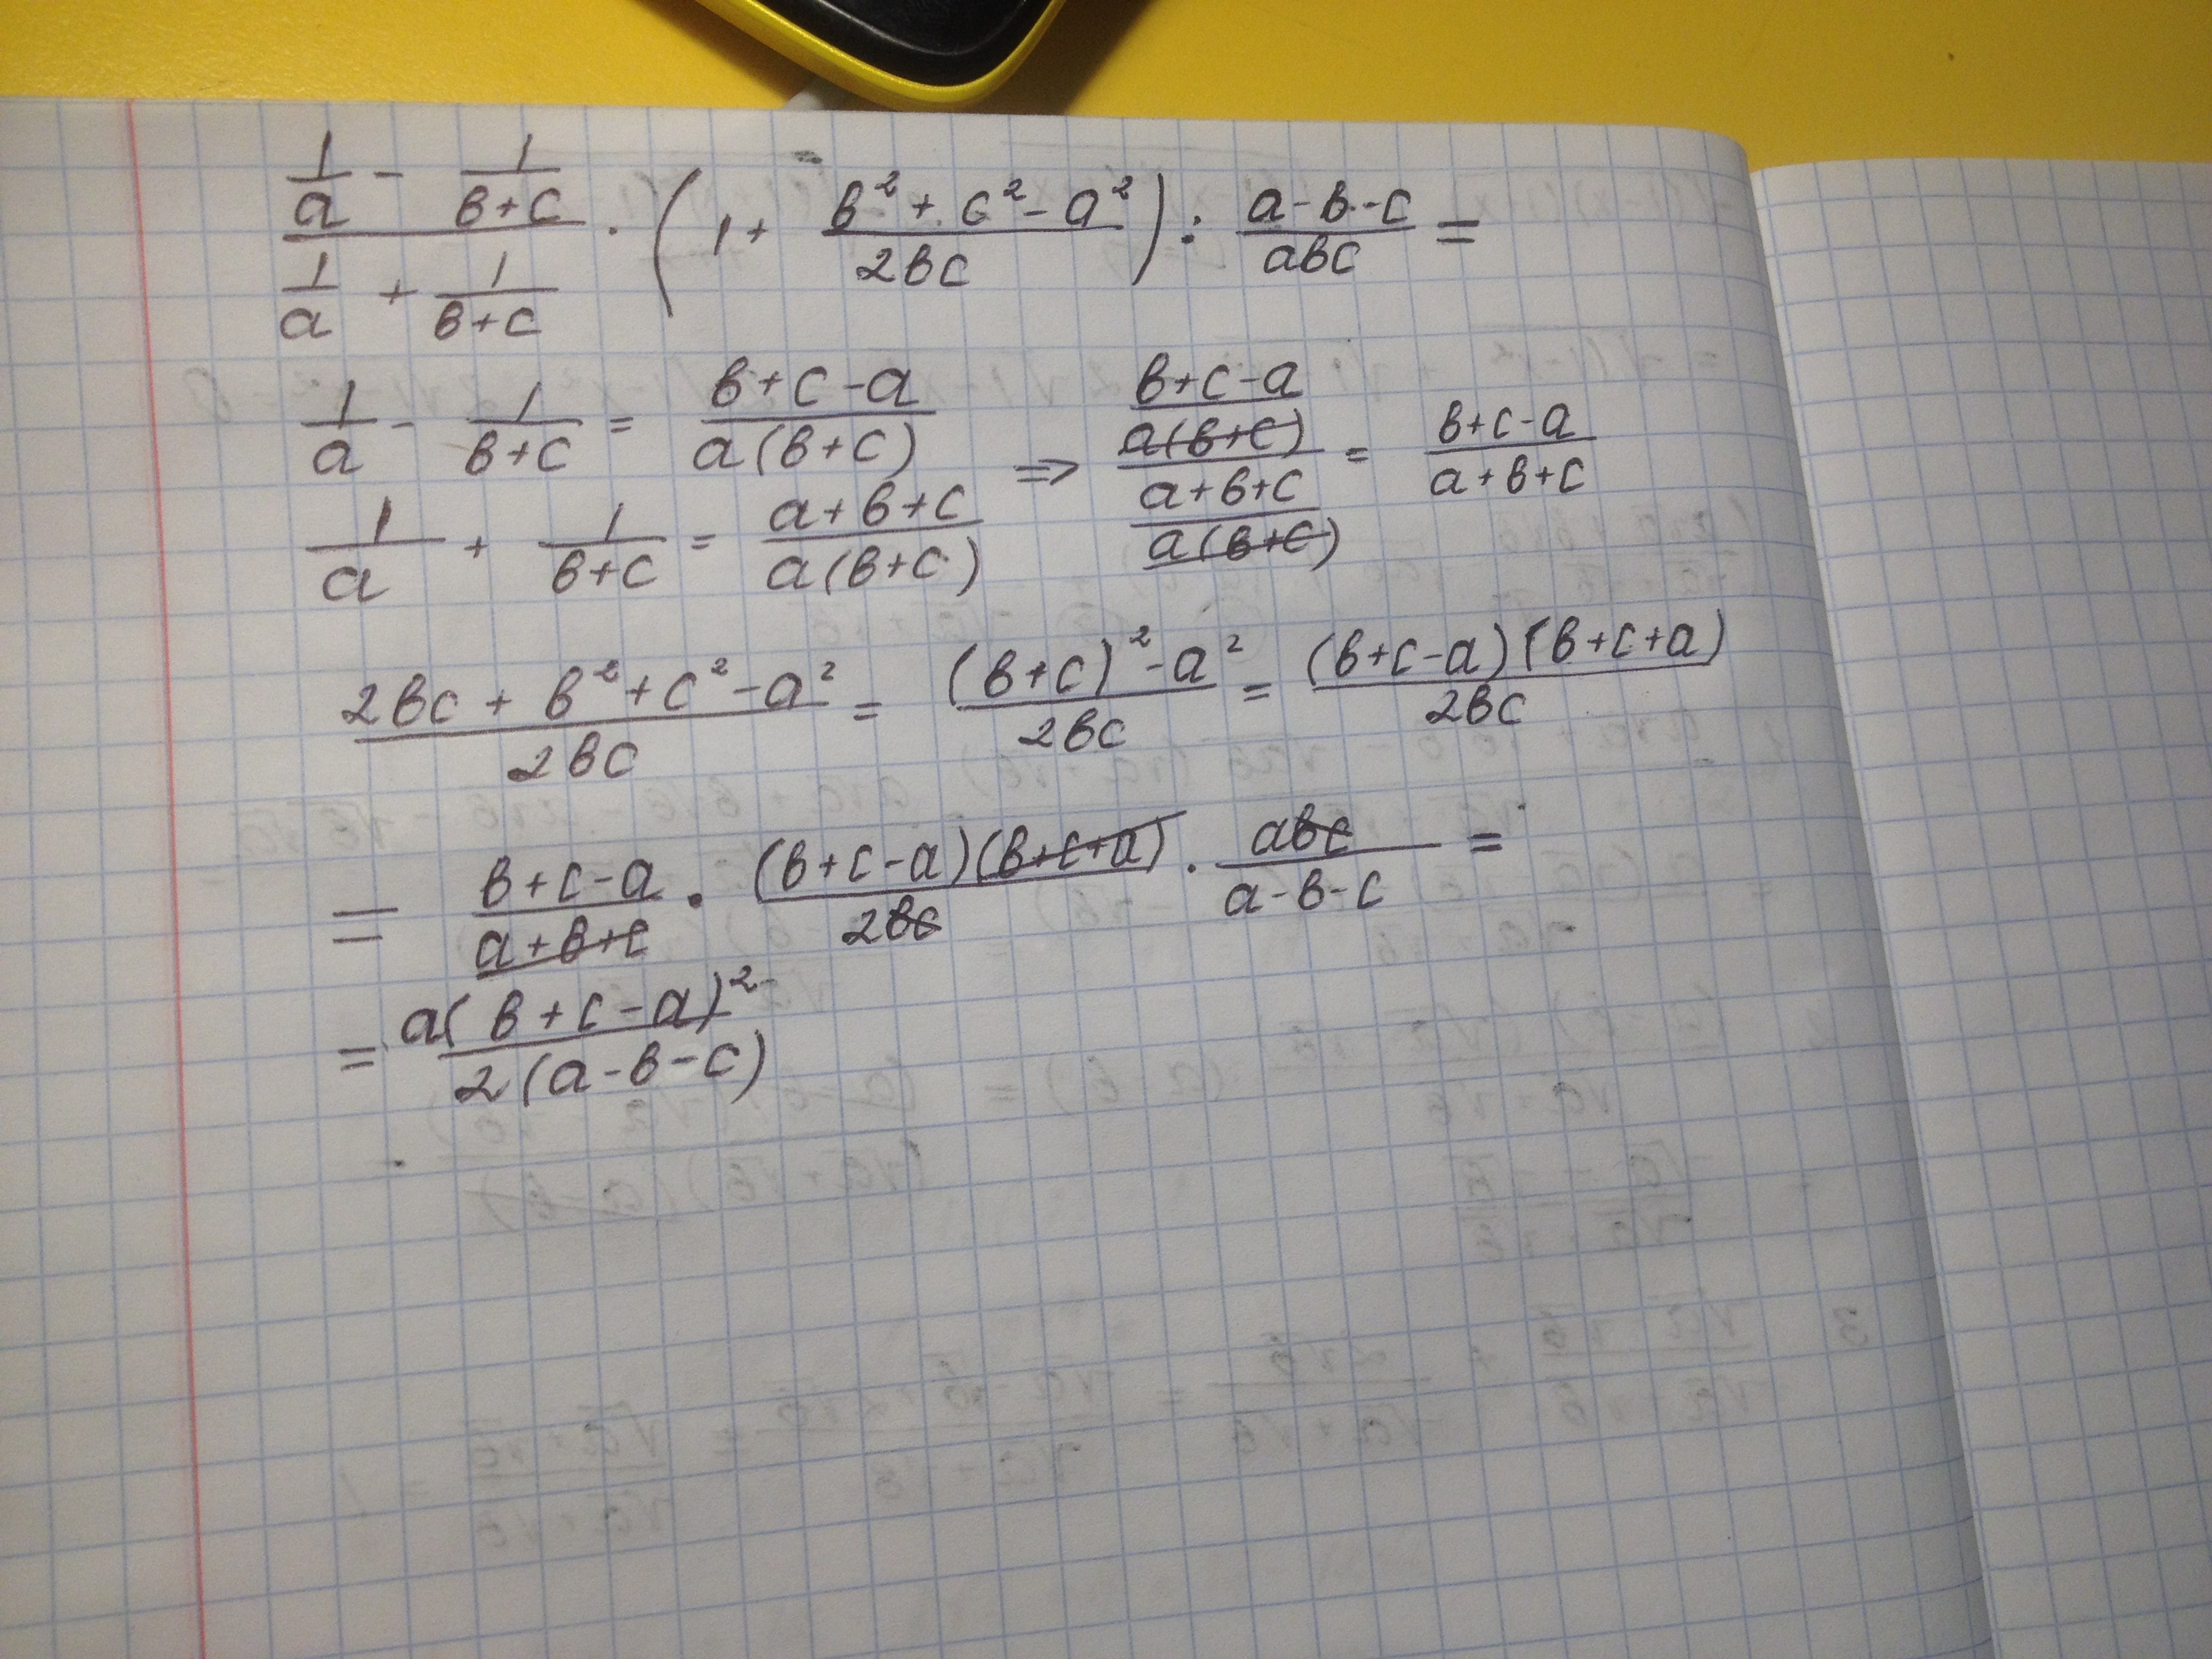 \frac{\frac{1}{a} - \frac{1}{в+c}}{\frac{1}{a} + \frac{1}{в+c}} \cdot \left(1 + \frac{в^2+c^2-a^2}{2вc}\right) : \frac{a-в-c}{aвc} =
\frac{1}{a} - \frac{1}{в+c} = \frac{в+c-a}{a(в+c)}
\frac{1}{a} + \frac{1}{в+c} = \frac{a+в+c}{a(в+c)} => \frac{\frac{в+c-a}{a(в+c)}}{\frac{a+в+c}{a(в+c)}} = \frac{в+c-a}{a+в+c}
\frac{2вc + в^2+c^2-a^2}{2вc} = \frac{(в+c)^2-a^2}{2вc} = \frac{(в+c-a)(в+c+a)}{2вc}
= \frac{в+c-a}{a+в+c} \cdot \frac{(в+c-a)(в+c+a)}{2вc} \cdot \frac{aвc}{a-в-c} =
= \frac{a(в+c-a)^2}{2(a-в-c)}